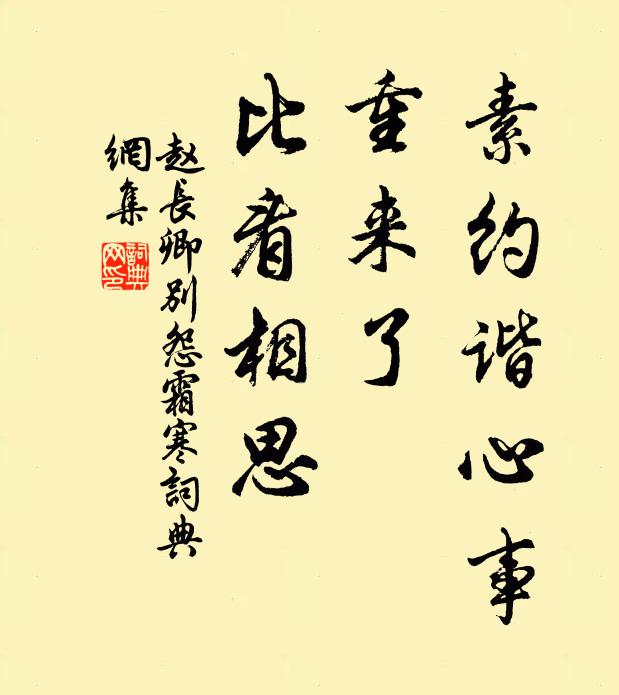 素约谐心事
重来了
比看相思
赵長卿别怨霜寒詞典
網集
詞典
网印